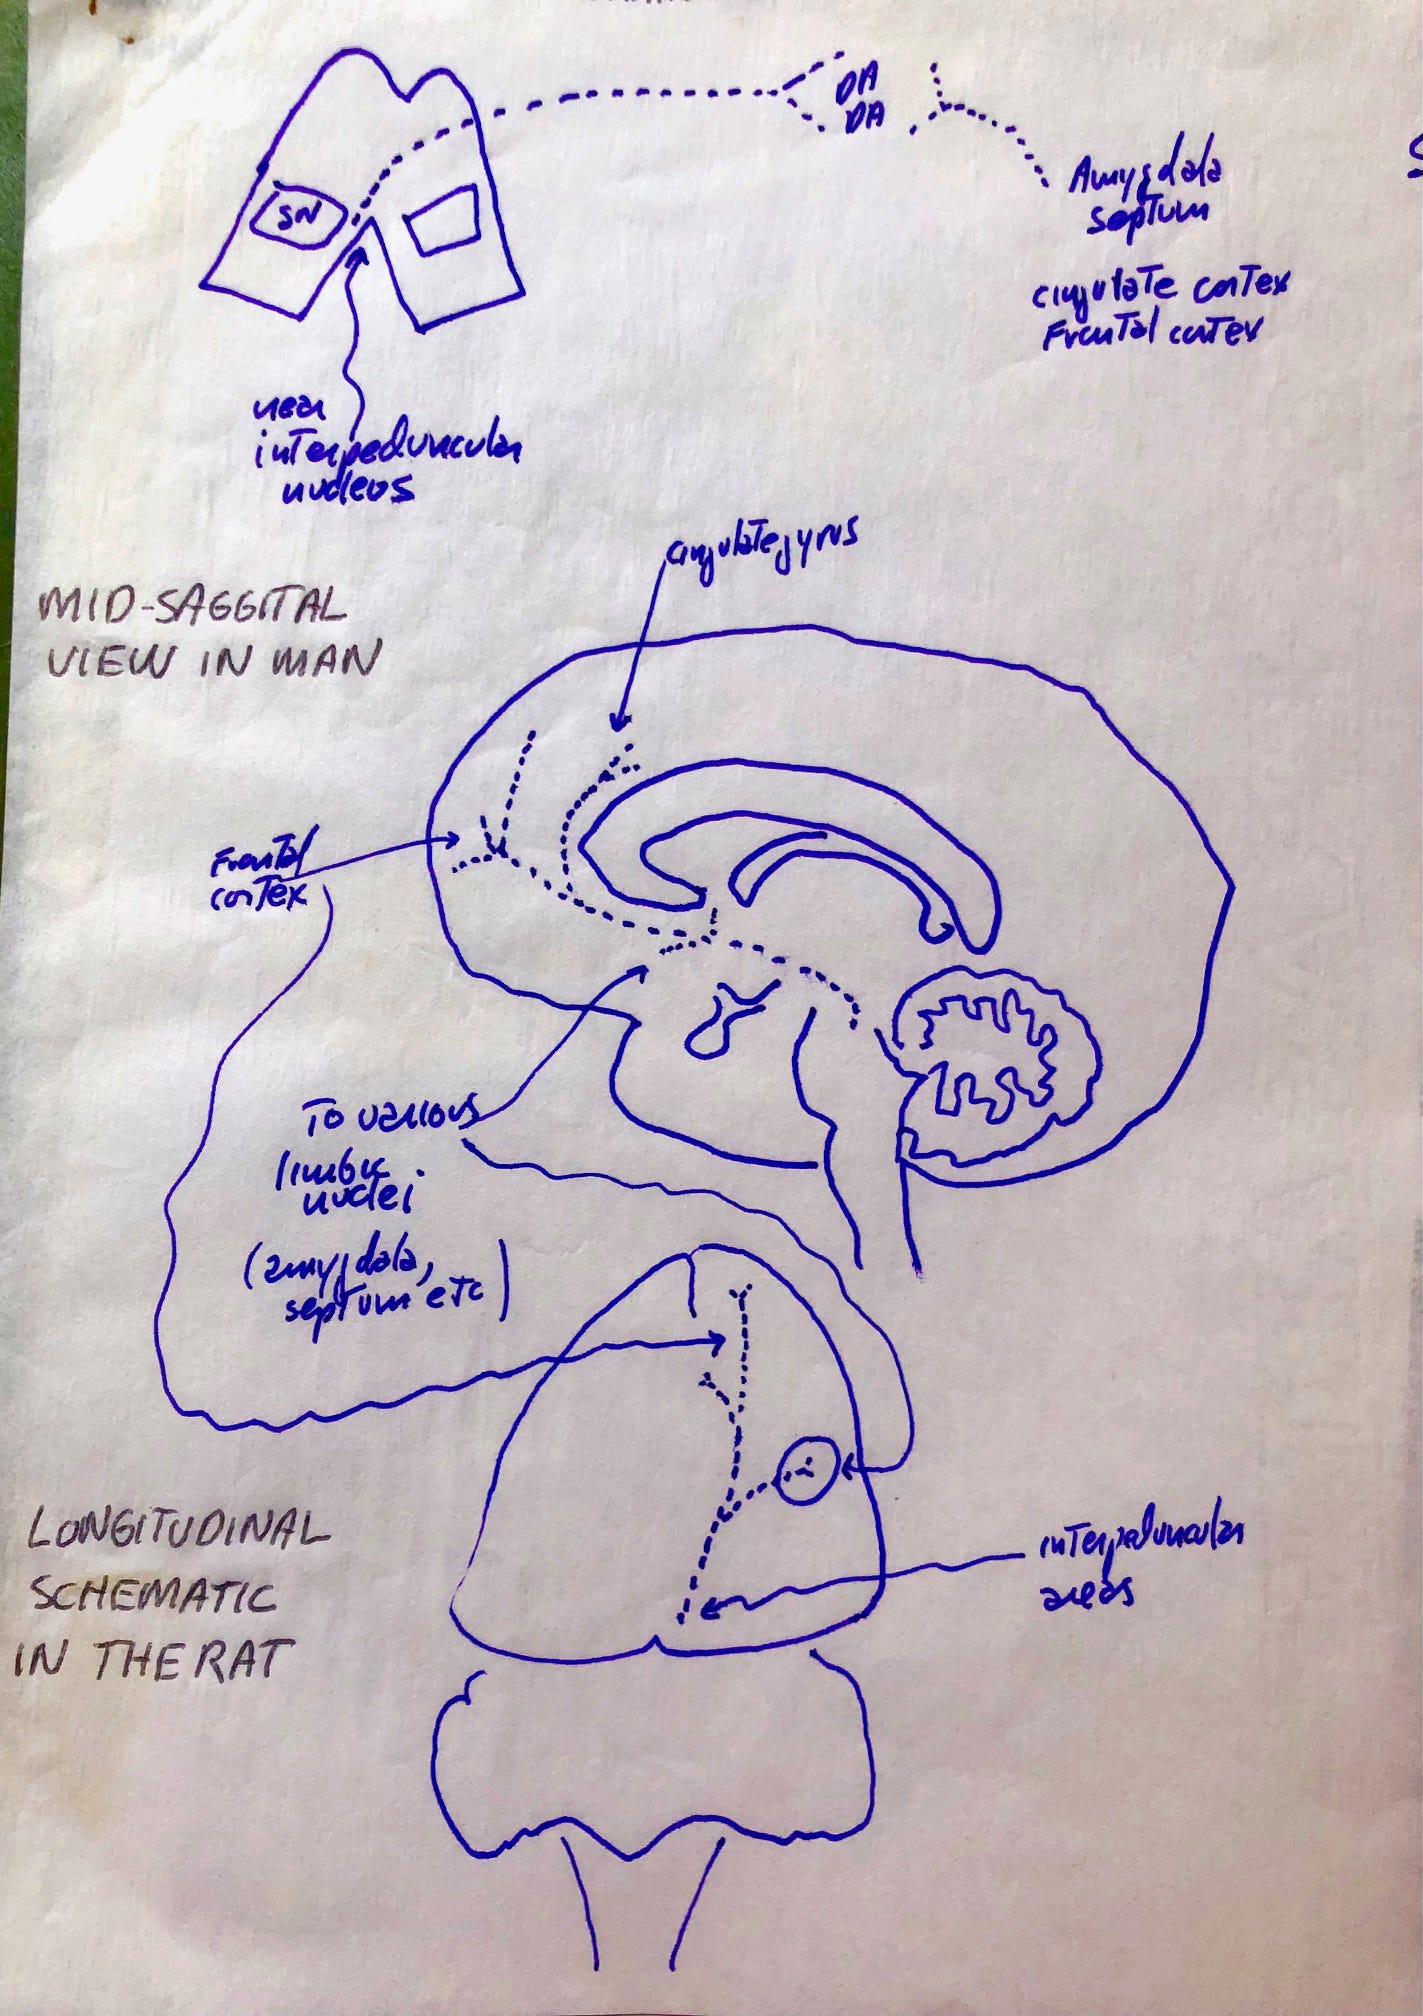 DA
DA
Amygdala
septum
cingulate cortex
Frontal cortex
SN
near
interpeduncular
nucleus
cingulate gyrus
MID-SAGGITAL
VIEW IN MAN
Frontal
cortex
To various
limbic
nuclei
(amygdala,
septum etc)
LONGITUDINAL
SCHEMATIC
IN THE RAT
interpeduncular
areas